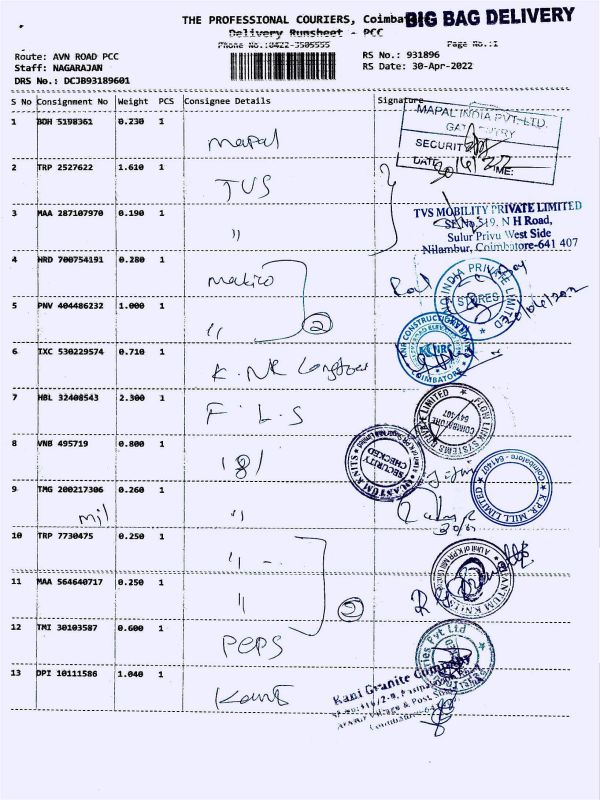 THE PROFESSIONAL COURIERS, Coimbat
BIG BAG DELIVERY
Delivery Runsheet - PCC
Phone No.:0422-3505555
Page No.:1
Route: AVN ROAD PCC
RS No.: 931896
Staff: NAGARAJAN
RS Date: 30-Apr-2022
DRS No.: DCJB93189601
S No Consignment No Weight PCS Consignee Details Signature
1 BDH 5198361 0.230 1 mapal
MAPAL INDIA PVT. LTD.
GATE ENTRY
SECURITY
DATE TIME:
2 TRP 2527622 1.610 1 TVS
3 MAA 287107970 0.190 1 "
TVS MOBILITY PRIVATE LIMITED
SF.No.519, N H Road,
Sulur Privu West Side
Nilambur, Coimbatore-641 407
4 HRD 700754191 0.280 1
INDIA PRIVATE LIMITED
STORES
5 PNV 404486232 1.000 1 "
2
KNR CONSTRUCTIONS
COIMBATORE
6 IXC 530229574 0.710 1 K.NR
7 HBL 32408543 2.300 1 F.L.S
FLOW LINK SYSTEMS PRIVATE LIMITED
COIMBATORE
641 407
8 VNB 495719 0.800 1
SECURITY
CHECKED
QUANTUM KNITS
K.P.R. MILL LIMITED
Coimbatore - 641407
9 TMG 200217306 0.260 1 "
mil
10 TRP 7730475 0.250 1 "
11 MAA 564640717 0.250 1 "
QUANTUM KNITS
12 TMI 30103587 0.600 1 PEPS
13 DPI 10111586 1.040 1
Kani Granite Company